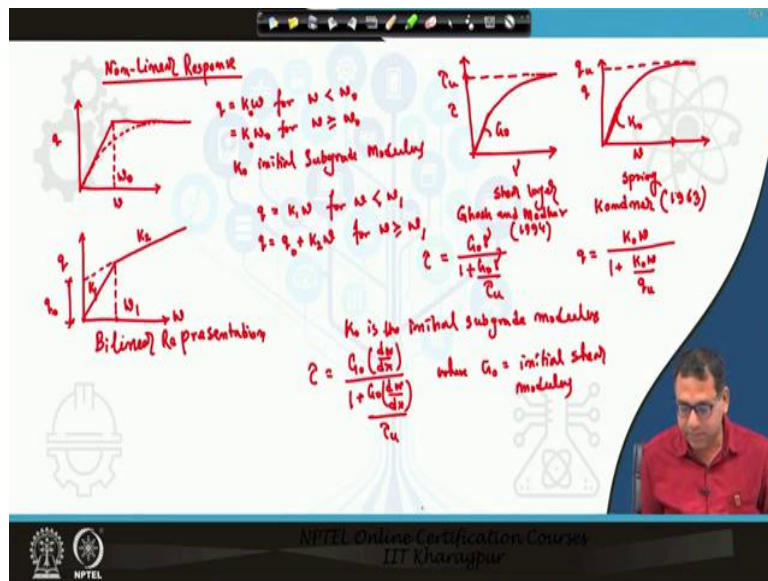 Non-Linear Response
q = K₀w for w < w₀
= K₀w₀ for w ≥ w₀
K₀ initial Subgrade Modulus
q
w₀
w
q = K₁w for w < w₁
q = q₀ + K₂w for w ≥ w₁
q
q₀
K₁
K₂
w₁
w
Bilinear Representation
τu
τ
G₀
γ
shear layer
Ghosh and Madhav
(1994)
τ = G₀γ / (1 + G₀γ/τu)
qu
q
K₀
w
spring
Kondner (1963)
q = K₀w / (1 + K₀w/qu)
K₀ is the initial subgrade modulus
τ = G₀(dw/dx) / (1 + G₀(dw/dx)/τu) where G₀ = initial shear
modulus
NPTEL Online Certification Courses
IIT Kharagpur
NPTEL